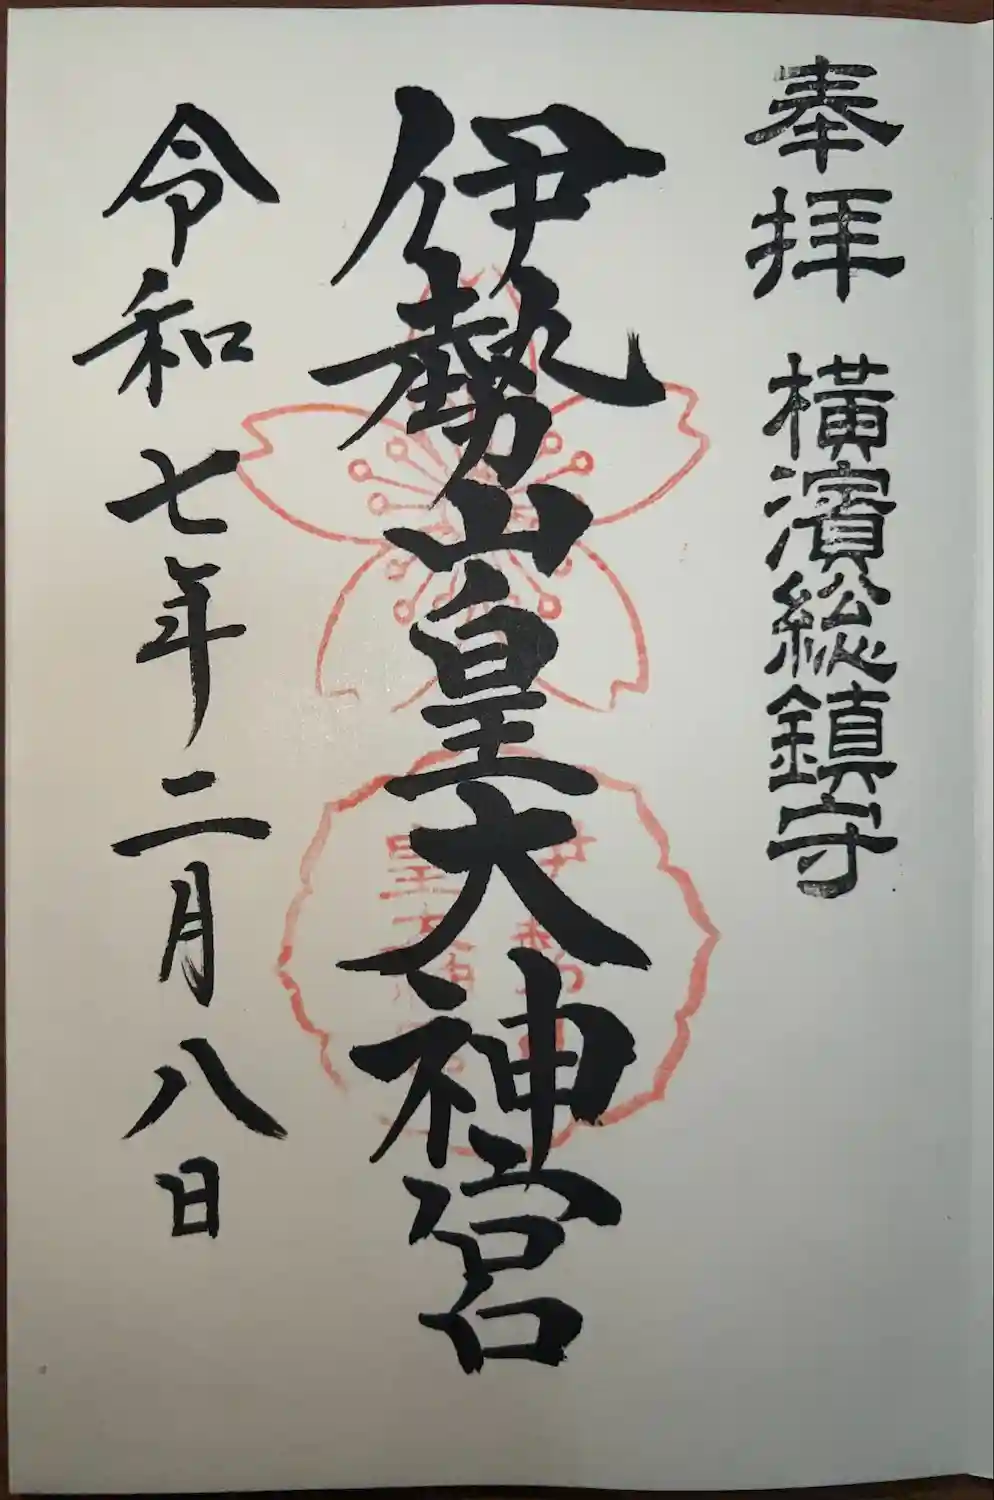 奉拝 横濱総鎮守
伊勢山皇大神宮
伊勢山
皇大神宮
令和七年二月八日